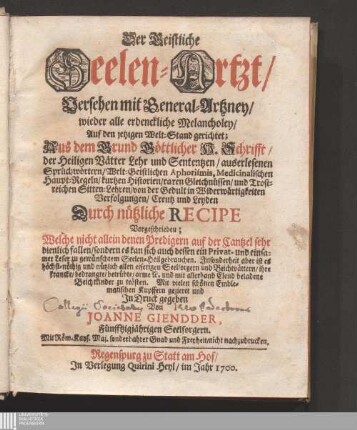 Der Geistliche
Seelen-Artzt/
Versehen mit General-Artzney/
wieder alle erdenckliche Melancholey/
Auf den jetzigen Welt-Stand gerichtet;
Aus dem Grund Göttlicher H. Schrifft/
der Heiligen Vätter Lehr und Sententzen/ auserlesenen
Sprüchwörtern/ Welt-Geistlichen Aphorismis, Medicinalischen
Haupt-Regeln/ kurtzen Historien/ raren Gleichnüssen/ und Trost-
reichen Sitten-Lehren/ von der Gedult in Widerwärtigkeiten
Verfolgungen/ Creutz und Leyden
Durch nützliche RECIPE
Vorgeschrieben;
Welche nicht allein denen Predigern auf der Cantzel sehr
dienlich fallen/ sondern es kan sich auch dessen ein Privat- und einsa-
mer Leser zu gewünschtem Seelen-Heil gebrauchen. Insonderheit aber ist es
höchst-nöthig und nützlich allen eyferigen Seelsorgern und Beichtvättern/ ihre
krancke/ bedrangte/ betrübte/ arme &c. und mit allerhand Elend beladene
Beichtkinder zu trösten. Mit vielen schönen Emble-
matischen Kupffern gezieret und
In Druck gegeben
Collegii Societatis Von
JOANNE GIENDDER,
Fünffzigjährigen Seelsorgern.
Mit Röm. Kays. Maj. sonderbahrer Gnad und Freyheit nicht nachzudrucken.
Regenspurg zu Statt am Hof/
In Verlegung Quirini Heyl/ im Jahr 1700.